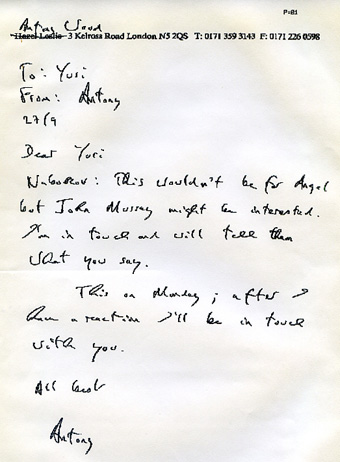 P-01
Antony Wood
Hazel Leslie 3 Kelross Road London N5 2QS T: 0171 359 3143 F: 0171 226 0598
To: Yuri
From: Antony
27/9
Dear Yuri
Nabokov: This wouldn't be for Angel
but John Murray might be interested.
I'm in touch and will tell them
what you say.
This on Monday; after I
have a reaction I'll be in touch
with you.
All best
Antony